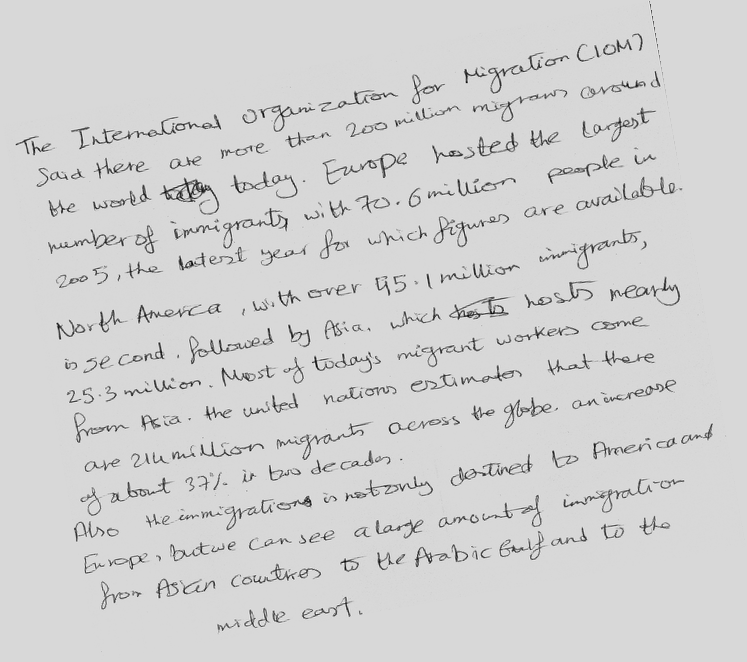 The International organization for Migration (IOM)
Said there are more than 200 million migrans around
the world today. Europe hosted the largest
number of immigrants, with 70.6 million people in
2005, the latest year for which figures are available.
North America, with over 45.1 million immigrants,
is second, followed by Asia, which hosts nearly
25.3 million. Most of today's migrant workers come
from Asia. the united nations estimates that there
are 214 million migrants across the globe. an increase
of about 37% in two decades.
Also the immigrations is not only destined to America and
Europe, but we can see a large amount of immigration
from Asian countries to the Arabic Gulf and to the
middle east.